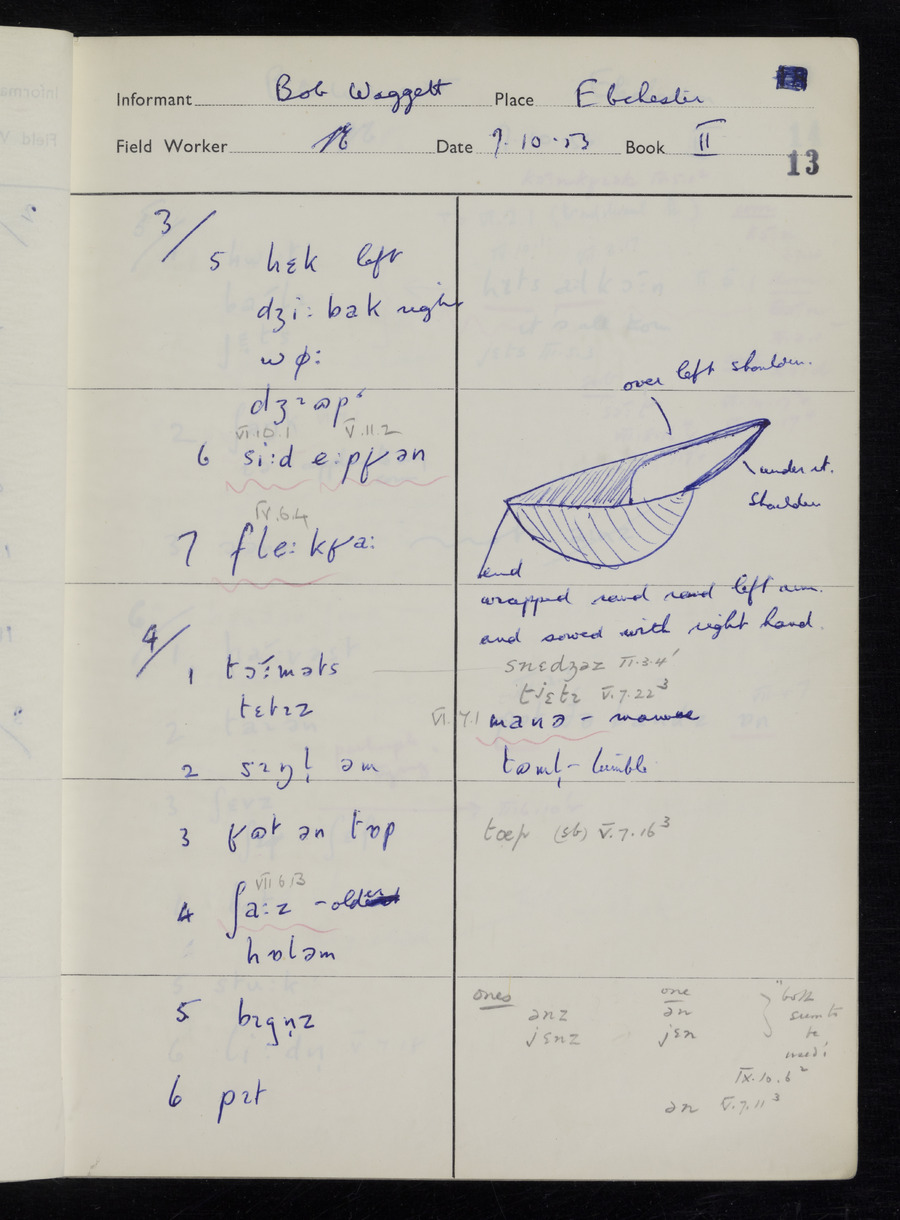 Informant Bob Waggett Place Ebchester
Field Worker Date 7.10.53 Book II
13
3/
5 hɛk left
dʒi: bak right
wø:
dʒɪ ɷp
VI.10.1 V.11.2
6 si:d
IV.6.4
7
over left shoulder.
under rt.
shoulder
end
wrapped round round left arm.
and sowed with right hand.
4/
1 snɛdʒəz II.3.4
tɛtɪz tjɛtɪ V.7.22³
VI.7.1 manə - manure
2 sɪŋl̩ əm tɷml̩ - tumble
3 tɷp (sb) V.7.16³
VII 6 13
4 ʃa:z - older
hɒləm
5 bɪgn̩z
ones one
ənz ən
jɛnz jɛn
"both
seem to
be
used"
IX.10.6²
6 pɪt ən V.7.11³